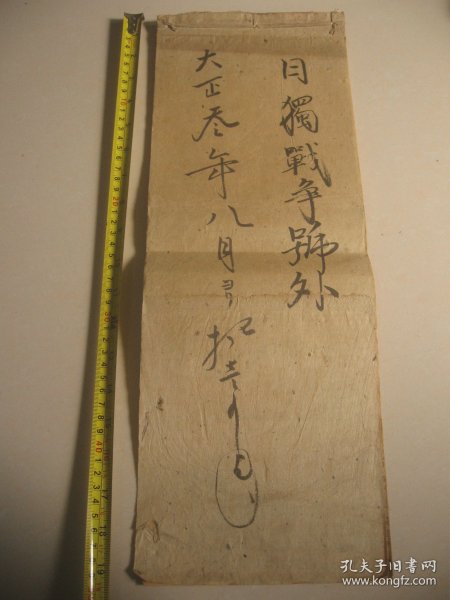 日獨戰争號外
大正叄年八月ヨリ
孔夫子旧书网
www.kongfz.com